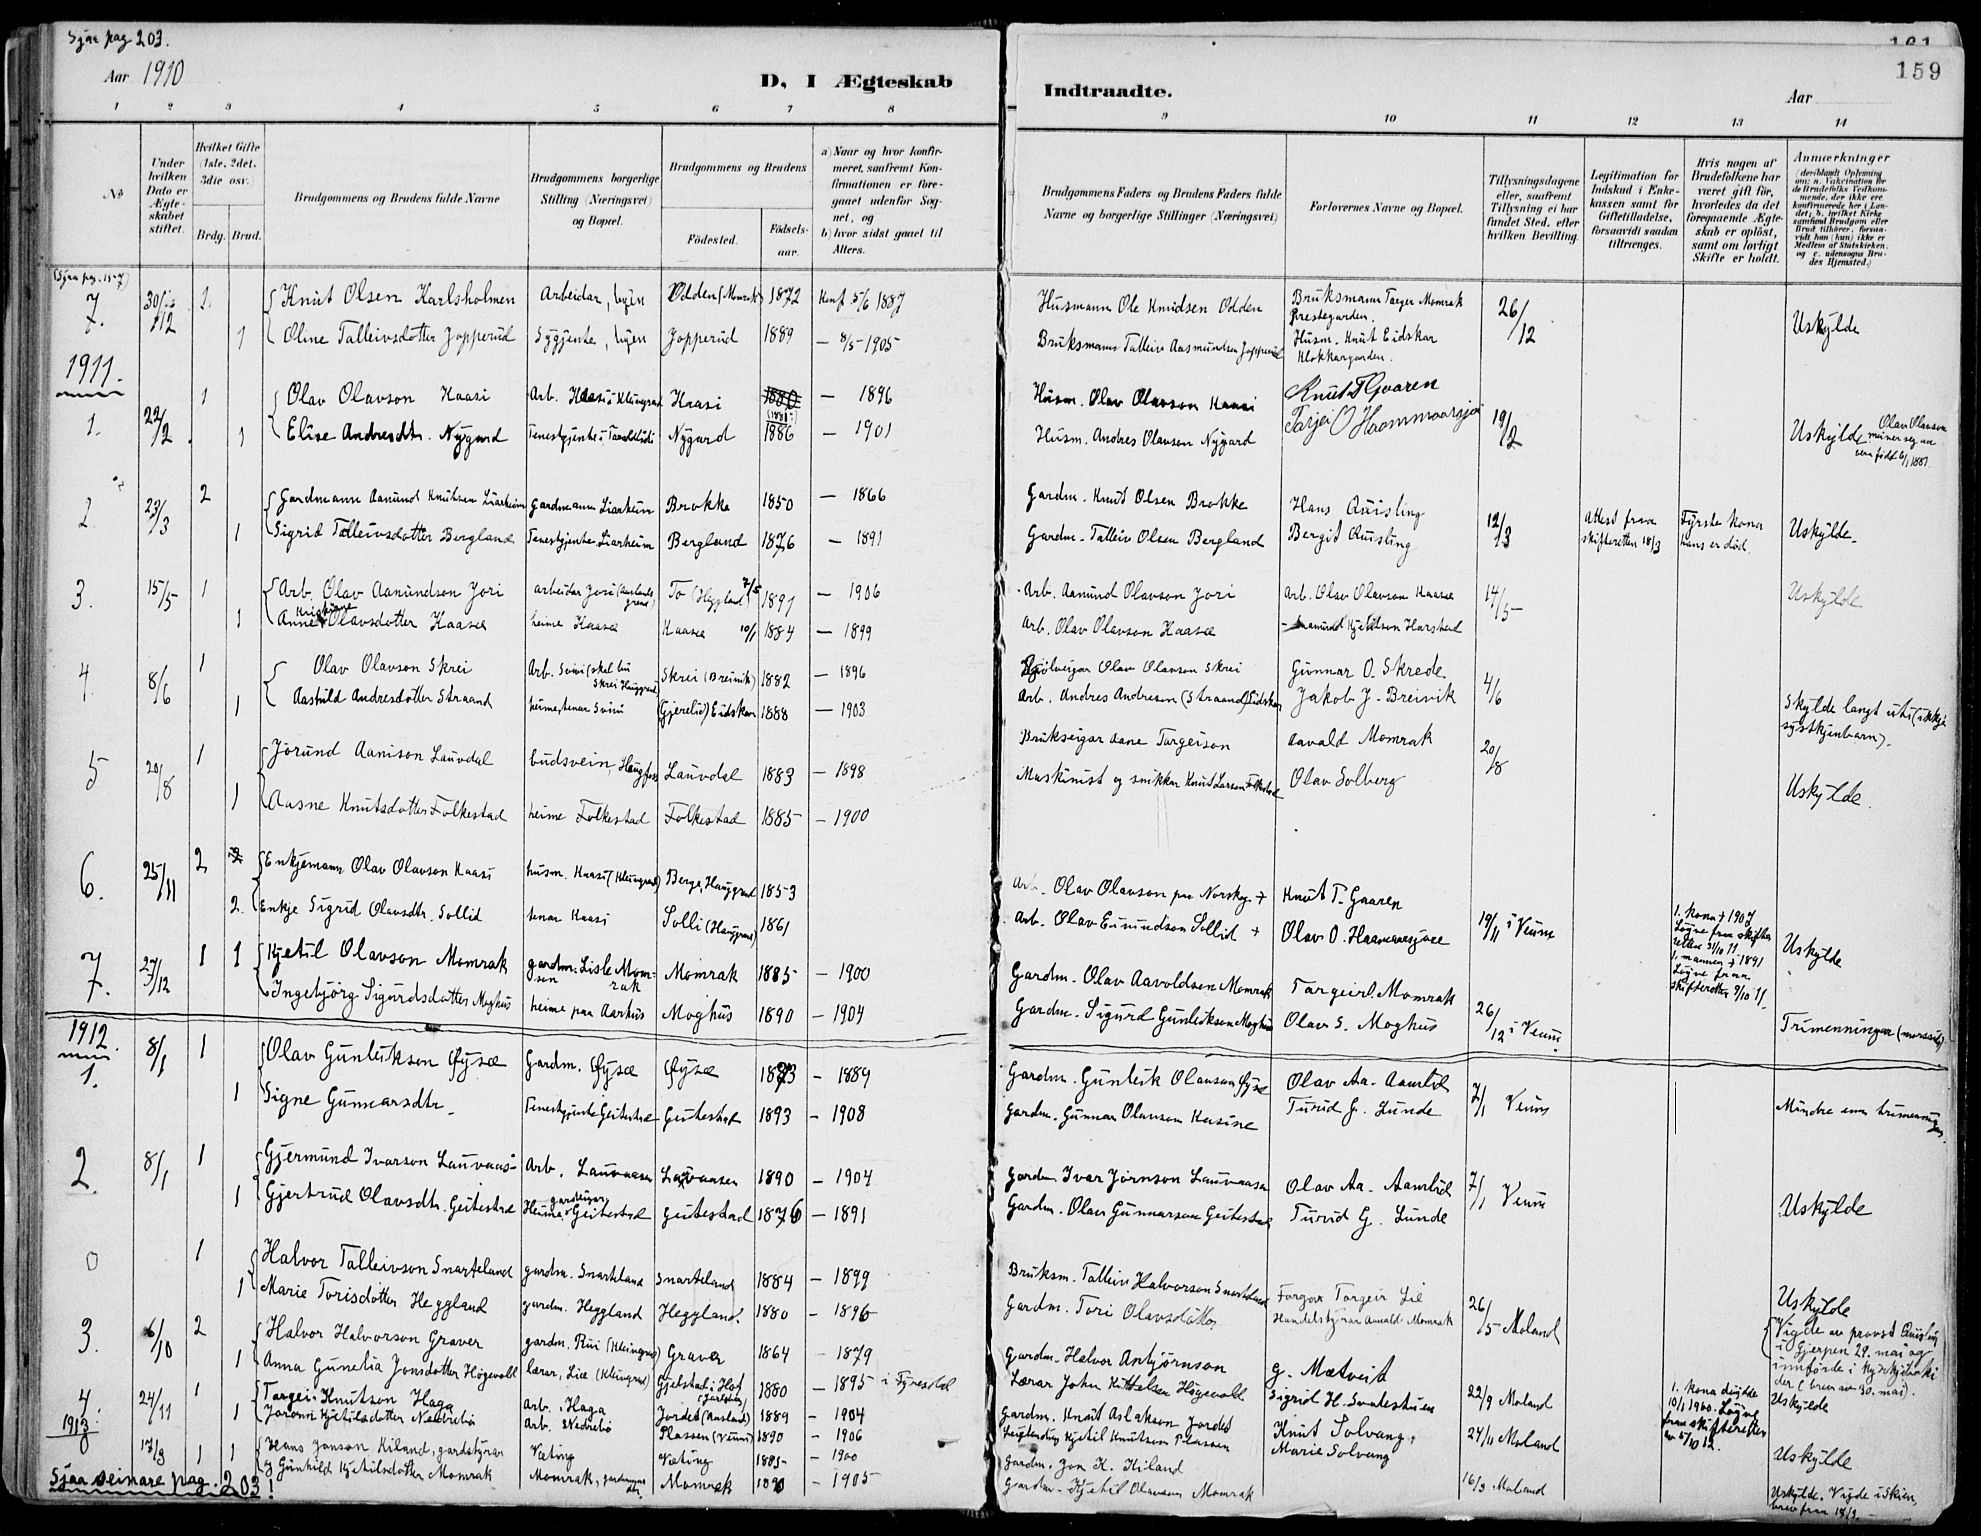 Sjaa pag 203.
Aar 1910
D, I Ægteskab
Indtraadte.
Aar
161
159
1 2 3 4 5 6 7 8 9 10 11 12 13 14
No
Under hvilken Dato er Ægteskabet stiftet.
Hvilket Gifte (1ste, 2det, 3die osv.)
Brdg. Brud.
Brudgommens og Brudens fulde Navne
Brudgommens borgerlige Stilling (Næringsvei) og Bopæl.
Brudgommens og Brudens
Fødested.
Fødselsaar.
a) Naar og hvor konfirmeret, saafremt Konfirmationen er foregaaet udenfor Sognet, og
b) hvor sidst gaaet til Alters.
Brudgommens Faders og Brudens Faders fulde Navne og borgerlige Stillinger (Næringsvei)
Forlovernes Navne og Bopæl.
Tillysningsdagene eller, saafremt Tillysning ei har fundet Sted, efter hvilken Bevilling.
Legitimation for Indskud i Enkekassen samt for Giftetilladelse, forsaavidt saadan tiltrænges.
Hvis nogen af Brudefolkene har været gift før, hvorledes da det foregaaende Ægteskab er opløst, samt om lovligt Skifte er holdt.
Anmærkninger
(Sjaa pag. 157)
7. 30/12 1. Knut Olsen Karlsholmen Arbeidar, byen Odden (Momrak) 1872 Konf. 5/6 1887 Husmann Ole Knudsen Odden Bruksmann Targer Momrak Prestegarden. 26/12 Uskylde
1 Oline Talleivsdotter Jopperud Sygjente, byen Jopperud 1889 — 8/5 1905 Bruksmann Talleiv Aasmundsen Jopperud Husm. Knut Eidskar Klokkargarden.
1911.
1. 22/2. 1 Olav Olavson Haasi Arb. Haasi i Kleivgrend Haasi 1880 (1881) — 1896 Husm. Olav Olavson Haasi Knut T Gvaaren 19/2
1 Elise Andresdtr. Nygard Tenestgjente i Nygard 1886 — 1901 Husm. Andres Olavsen Nygard Tarjei O Haammaarsjøi Uskylde Olav Olavson meiner seg aa vera fødd 6/1 1881.
2 23/3 2 Gardmann Aanund Knutsen Liarheim Gardmann Liarheim Brokke 1850 — 1866 Gardm. Knut Olsen Brokke Hans Quisling 12/3 Attest fraa skifteretten 18/3 Fyrste kona hans er død. Uskylde.
1 Sigrid Talleivsdotter Bergland Tenestgjente Liarheim Bergland 1876 — 1891 Gardm. Talleiv Olsen Bergland Bergit Quisling
3. 15/5 1 Arb. Olav Aanundson Jori arbeidar Jori To (Heggland) 7/5 1891 — 1906 Arb. Aanund Olavson Jori Arb. Olav Olavson Haasæ 14/5 Uskylde
1 Anne Kristine Olavsdotter Haasæ heime Haasæ Haasæ 10/1 1884 — 1899 Arb. Olav Olavson Haasæ Aanund Kjetilson Harstad
4. 8/6 1 Olav Olavson Skrei Arb. Svini (skal bu Skrei Hauggrend) Skrei (Breivik) 1882 — 1896 Olav Olavson Skrei Gunnar O. Skrede 4/6
1 Aashild Andresdotter Straand heime, tenar Svini (Gjerelid) Eidskar 1888 — 1903 Arb. Andres Andresen (Straand) Eidskar Jakob J. Breivik Skylde langt uti (ikkje systkjenbarn).
5 20/8 1 Jorund Aanison Lauvdal budsvein, Haugfoss Lauvdal 1883 — 1898 Brukseigar Aane Targeison Aavald Momrak 20/8
1 Aasne Knutsdotter Folkestad heime Folkestad Folkestad 1885 — 1900 Maskinist og snikkar Knut Larsen Folkestad Olav Solberg Uskylde.
6. 25/11 2 Enkjemann Olav Olavson Haasi husm. Haasi (Kleivgrend) Berge, Hauggrend 1853 Arb. Olav Olavson paa Norskog + Knut T. Gaaren 19/11 i Veum
2. Enkje Sigrid Olavsdtr. Sollid tenar Haasi Solli (Hauggrend) 1861 Arb. Olav Eivindson Sollid + Olav O. Haammaarsjøæ 1. kona + 1907 Løyve fraa skifteretten 31/10 11. 1. mannen + 1891 Løyve fraa skifteretten 9/10 11. Uskylde
7. 27/12 1 1 Kjetil Olavson Momrak gardm.sen Lisle Momrak Momrak 1885 — 1900 Gardm. Olav Aavoldsen Momrak Targeir O. Momrak 26/12 i Veum
Ingebjörg Sigurdsdotter Moghus heime paa Aarhus Moghus 1890 — 1904 Gardm. Sigurd Gunleiksen Moghus Olav S. Moghus Trimenningar (morssida)
1912.
1. 8/1 1 Olav Gunleikson Øysæ Gardm. Øysæ Øysæ 1873 — 1889 Gardm. Gunleik Olavsson Øysæ Olav Aa. Aamlid 7/1 Veum
1 Signe Gunnarsdtr. Tenestgjente Geitestad Geitestad 1893 — 1908 Gardm. Gunnar Olavson Turid G. Lunde Mindre enn trimenningar.
2. 8/1 1 Gjermund Ivarson Lauvaas Arb. Lauvaasen Lauvaasen 1890 — 1904 Gardm. Ivar Jørnson Lauvaasen Olav Aa. Aamlid 7/1 Veum
1 Gjertrud Olavsdtr. Geitestad Heime gardeigar Geitestad Geitestad 1876 — 1891 Gardm. Olav Gunnarson Geitestad Turid G. Lunde Uskylde
0 1 Halvor Talleivson Snarteland gardm. Snarteland Snarteland 1884 — 1899 Bruksm. Talleiv Halvorson Snarteland Targeir Lie 26/5 Moland Uskylde
1 Marie Torisdotter Heggland gardm. Heggland Heggland. 1880 — 1896 Gardm. Tori Olavsdotter Handelsstyrar Aavald Momrak Vigde av provst Quisling i Gjerpen 29. mai og innførde i kyrkjeboki der (brev av 30. mai).
3. 6/10 2 Halvor Halvorson Graver gardm. Rui (Kleivgrend) Graver 1864 — 1879 Gardm. Halvor Anbjørnson G. Mætveit 22/9 Moland 1. kona døydde 10/1 1900. Løyve fraa skifteretten av 5/10 12. Uskylde
1 Anna Gunelia Jonsdotter Högevold lærar, Lie (Kleivgrend) Gjelstad i Hof (Jarlsberg) 1880 — 1895 i Fyresdal Lærar John Kittelsen Högevold Sigrid H. Svadestuen
4. 24/11 1 Targei Knutson Haga Arb. i Haga Jordet (Aasland) 1889 — 1904 Gardm. Knut Aslakson Jordet Knut Solvang 24/11 Moland Uskylde
1 Joronn Kjetilsdotter Nedrebø Arb. Nedrebø Plassen (Veum) 1890 — 1906 Kjetil Knutsen Plassen Marie Solvang
1913
0 17/3 1 1 Hans Jonson Kiland, gardstyrar Væting Væting 1885 — 1900 Gardm. Jon H. Kiland 16/3 Moland
og Gunhild Kjetilsdotter Momrak Momrak, Momrak 1890 — 1905 Gardm. Kjetil Olavson Momrak Uskylde. Vigde i Skien, brev fraa 17/3.
Sjaa seinare pag. 203!